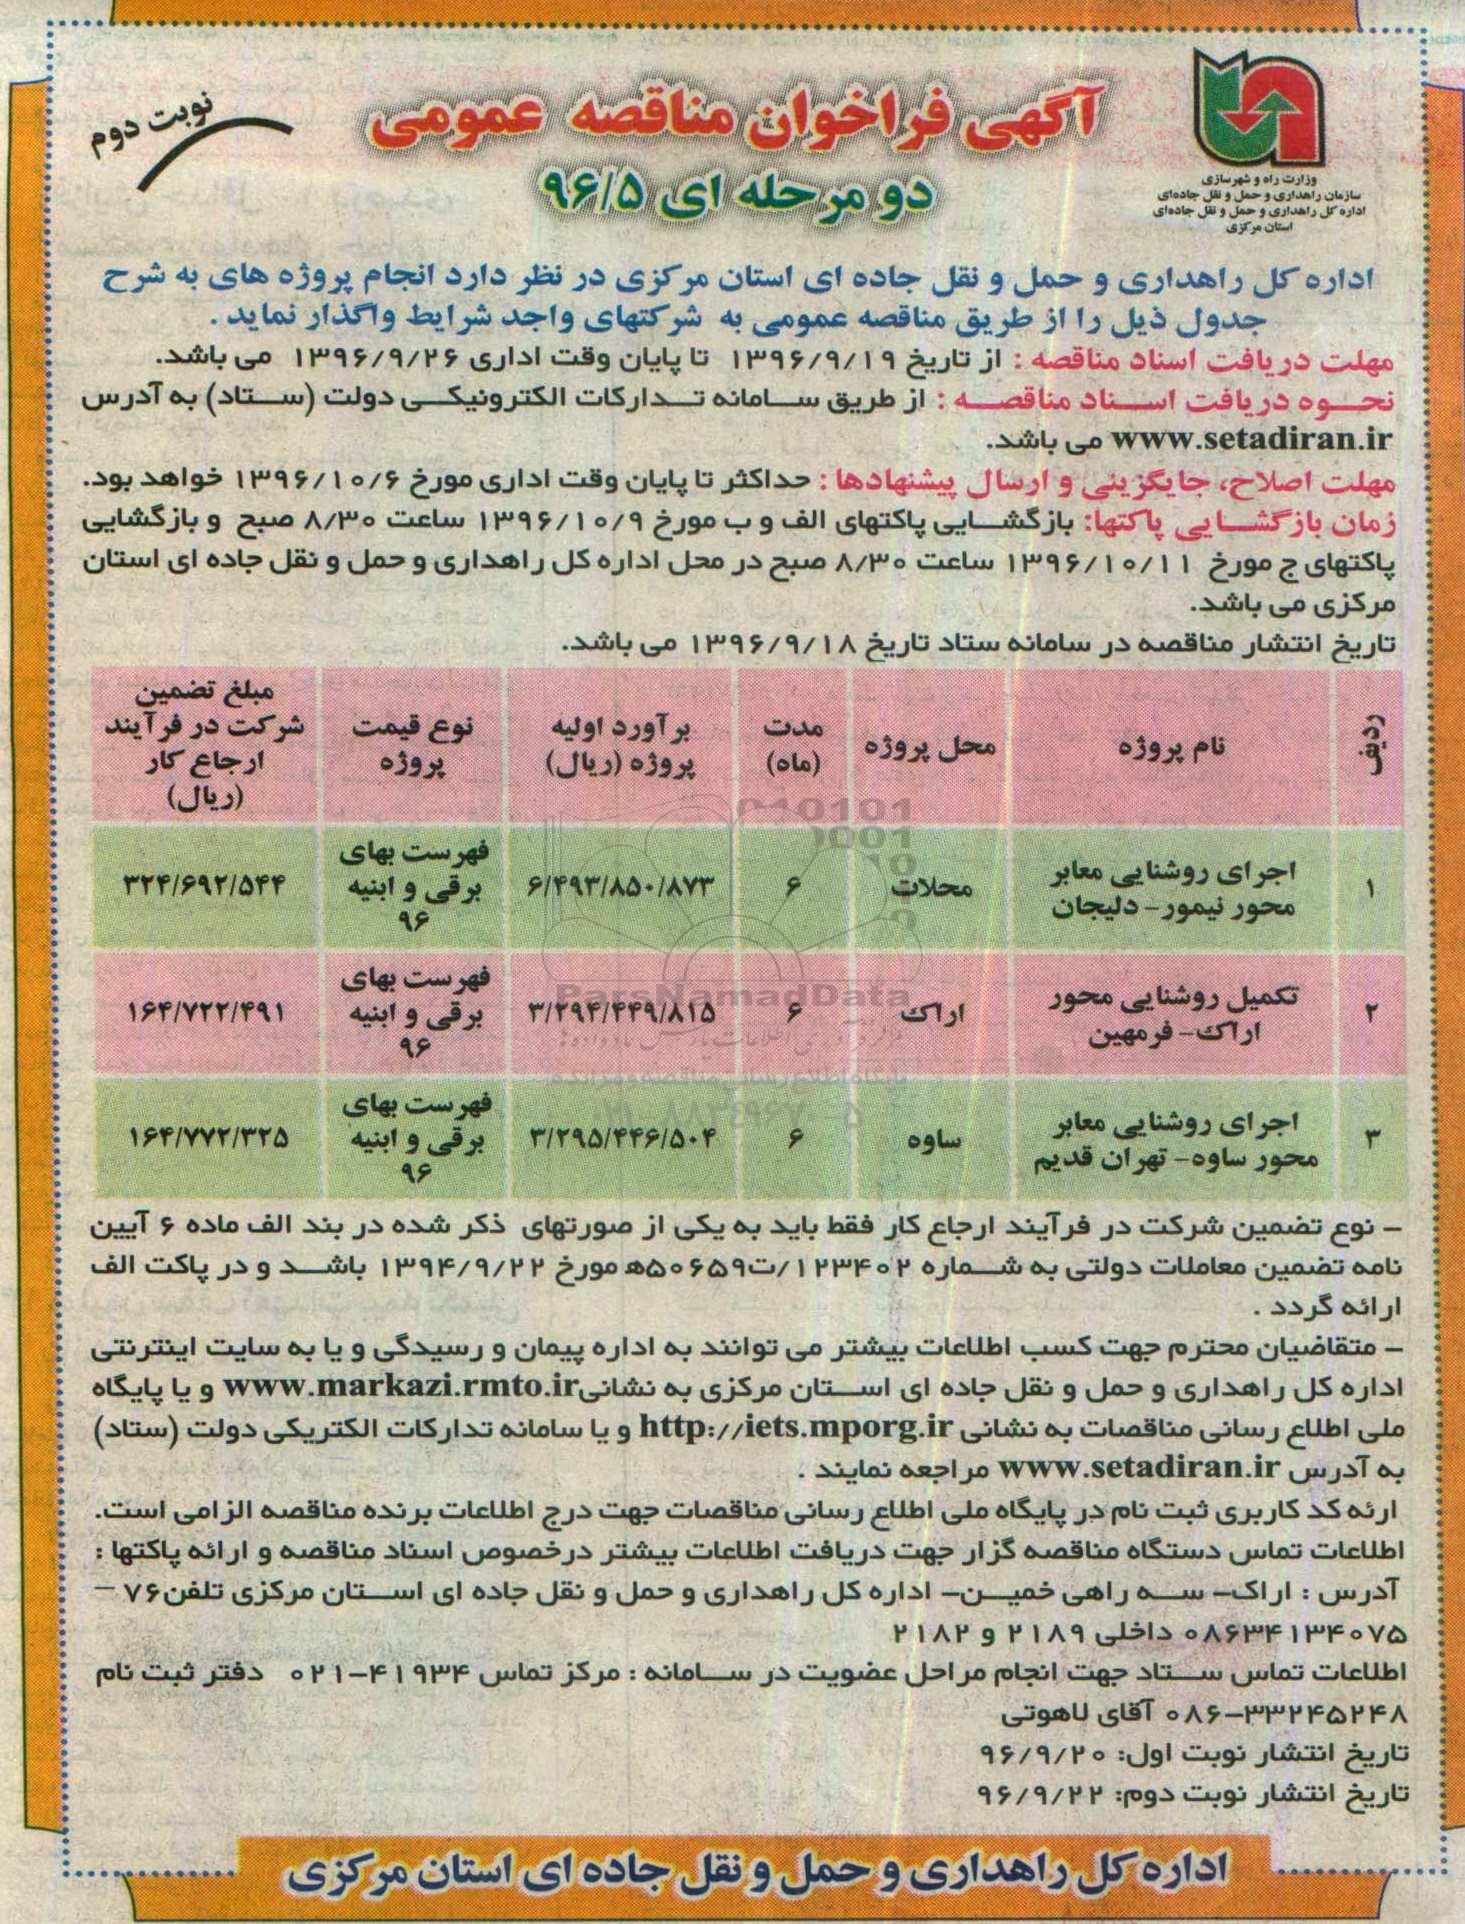 وزارت راه و شهرسازی
سازمان راهداری و حمل و نقل جاده‌ای
اداره کل راهداری و حمل و نقل جاده‌ای
استان مرکزی
آگهی فراخوان مناقصه عمومی
دو مرحله ای ۹۶/۵
نوبت دوم
اداره کل راهداری و حمل و نقل جاده ای استان مرکزی در نظر دارد انجام پروژه های به شرح
جدول ذیل را از طریق مناقصه عمومی به شرکتهای واجد شرایط واگذار نماید .
مهلت دریافت اسناد مناقصه : از تاریخ ۱۳۹۶/۹/۱۹ تا پایان وقت اداری ۱۳۹۶/۹/۲۶ می باشد.
نحـــوه دریافت اســـناد مناقصـــه : از طریق ســـامانه تـــدارکات الکترونیکـــی دولت (ســـتاد) به آدرس
www.setadiran.ir می باشد.
مهلت اصلاح، جایگزینی و ارسال پیشنهادها : حداکثر تا پایان وقت اداری مورخ ۱۳۹۶/۱۰/۶ خواهد بود.
زمان بازگشـــایی پاکتها: بازگشـــایی پاکتهای الف و ب مورخ ۱۳۹۶/۱۰/۹ ساعت ۸/۳۰ صبح و بازگشایی
پاکتهای ج مورخ ۱۳۹۶/۱۰/۱۱ ساعت ۸/۳۰ صبح در محل اداره کل راهداری و حمل و نقل جاده ای استان
مرکزی می باشد.
تاریخ انتشار مناقصه در سامانه ستاد تاریخ ۱۳۹۶/۹/۱۸ می باشد.
ردیف | نام پروژه | محل پروژه | مدت (ماه) | برآورد اولیه پروژه (ریال) | نوع قیمت پروژه | مبلغ تضمین شرکت در فرآیند ارجاع کار (ریال)
۱ | اجرای روشنایی معابر محور نیمور- دلیجان | محلات | ۶ | ۶/۴۹۳/۸۵۰/۸۷۳ | فهرست بهای برقی و ابنیه ۹۶ | ۳۲۴/۶۹۲/۵۴۴
۲ | تکمیل روشنایی محور اراک- فرمهین | اراک | ۶ | ۳/۲۹۴/۴۴۹/۸۱۵ | فهرست بهای برقی و ابنیه ۹۶ | ۱۶۴/۷۲۲/۴۹۱
۳ | اجرای روشنایی معابر محور ساوه- تهران قدیم | ساوه | ۶ | ۳/۲۹۵/۴۴۶/۵۰۴ | فهرست بهای برقی و ابنیه ۹۶ | ۱۶۴/۷۷۲/۳۲۵
ParsNamadData
پایگاه اطلاع رسانی مناقصه و مزایده
– نوع تضمین شرکت در فرآیند ارجاع کار فقط باید به یکی از صورتهای ذکر شده در بند الف ماده ۶ آیین
نامه تضمین معاملات دولتی به شـــماره ۱۲۳۴۰۲/ت۵۰۶۵۹ه مورخ ۱۳۹۴/۹/۲۲ باشـــد و در پاکت الف
ارائه گردد .
– متقاضیان محترم جهت کسب اطلاعات بیشتر می توانند به اداره پیمان و رسیدگی و یا به سایت اینترنتی
اداره کل راهداری و حمل و نقل جاده ای اســـتان مرکزی به نشانی www.markazi.rmto.ir و یا پایگاه
ملی اطلاع رسانی مناقصات به نشانی http://iets.mporg.ir و یا سامانه تدارکات الکتریکی دولت (ستاد)
به آدرس www.setadiran.ir مراجعه نمایند .
ارئه کد کاربری ثبت نام در پایگاه ملی اطلاع رسانی مناقصات جهت درج اطلاعات برنده مناقصه الزامی است.
اطلاعات تماس دستگاه مناقصه گزار جهت دریافت اطلاعات بیشتر درخصوص اسناد مناقصه و ارائه پاکتها :
آدرس : اراک– ســـه راهی خمیـــن– اداره کل راهداری و حمل و نقل جاده ای اســـتان مرکزی تلفن ۷۶ –
۰۸۶۳۴۱۳۴۰۷۵ داخلی ۲۱۸۹ و ۲۱۸۲
اطلاعات تماس ســـتاد جهت انجام مراحل عضویت در ســـامانه : مرکز تماس ۴۱۹۳۴–۰۲۱ دفتر ثبت نام
۰۸۶–۳۳۲۴۵۲۴۸ آقای لاهوتی
تاریخ انتشار نوبت اول: ۹۶/۹/۲۰
تاریخ انتشار نوبت دوم: ۹۶/۹/۲۲
اداره کل راهداری و حمل و نقل جاده ای استان مرکزی